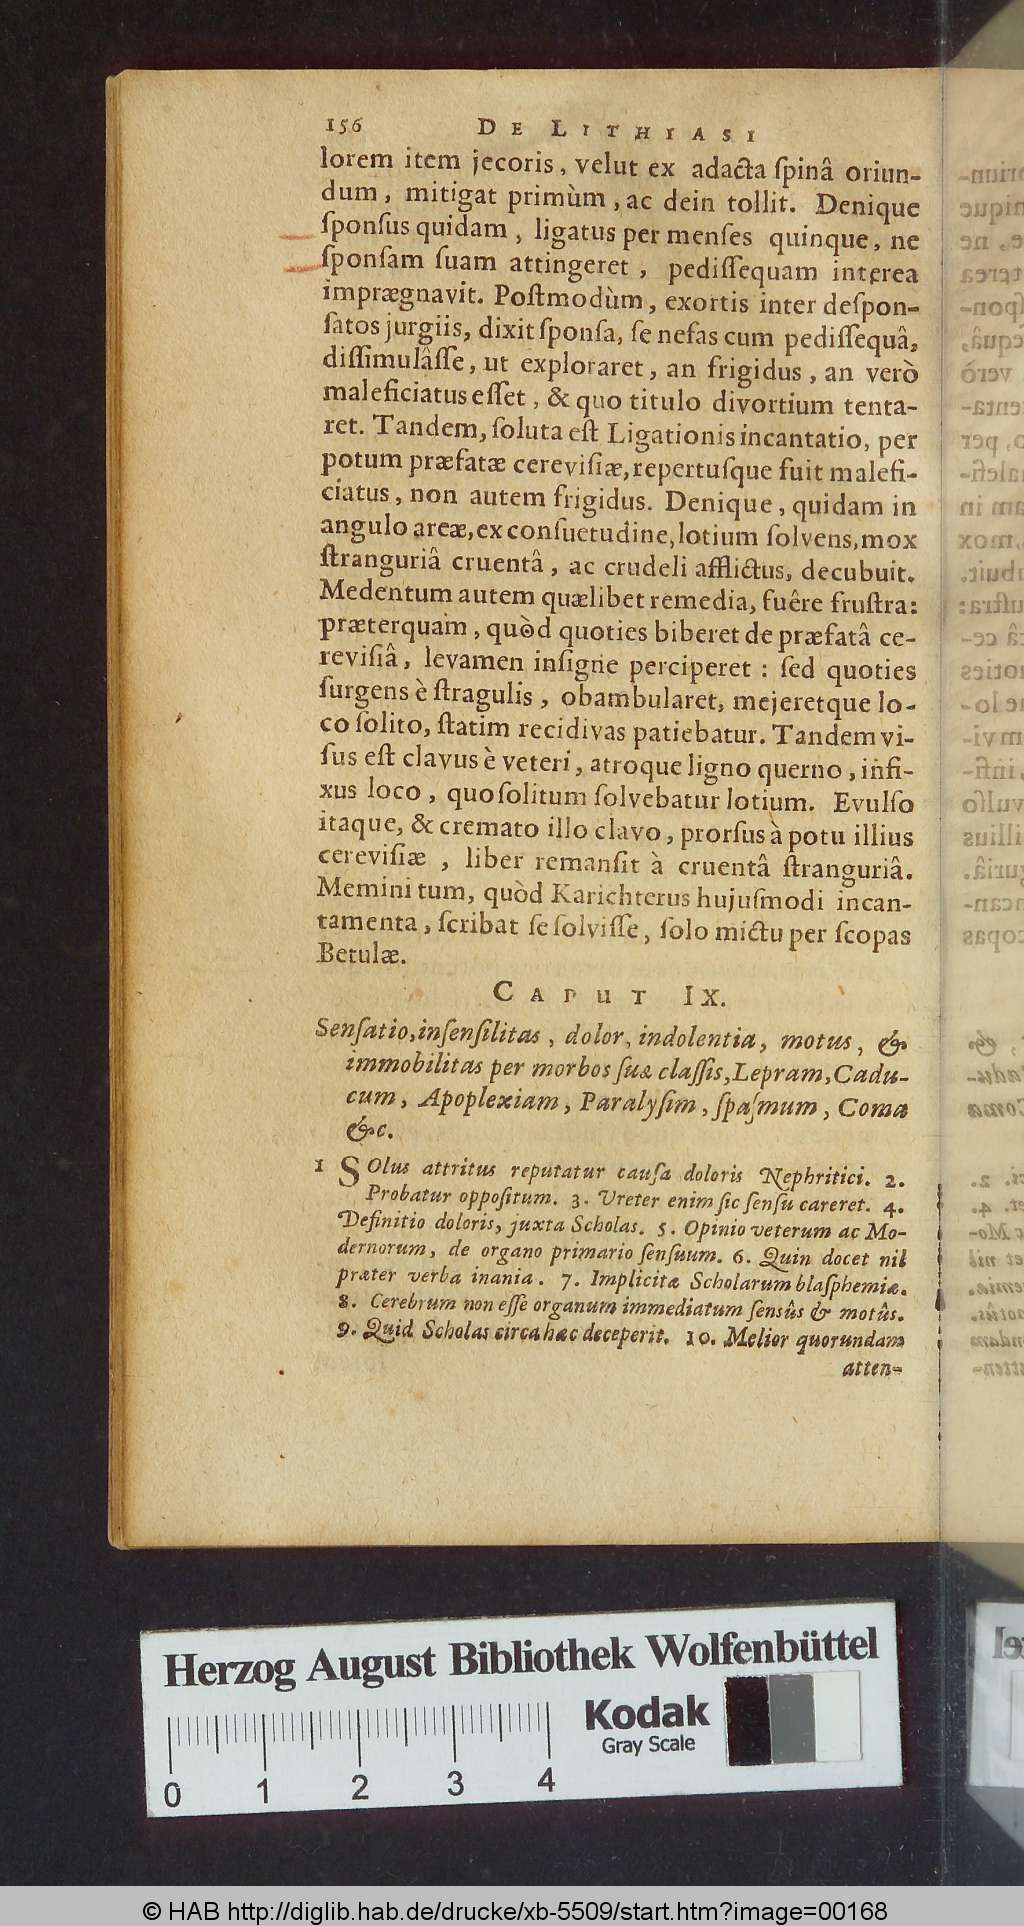 156 DE LITHIASI
lorem item jecoris, velut ex adacta ſpinâ oriun-
dum, mitigat primùm, ac dein tollit. Denique
ſponſus quidam, ligatus per menſes quinque, ne
ſponſam ſuam attingeret, pediſſequam interea
imprægnavit. Poſtmodùm, exortis inter deſpon-
ſatos jurgiis, dixit ſponſa, ſe nefas cum pediſſequâ,
diſſimulâſſe, ut exploraret, an frigidus, an verò
maleficiatus eſſet, & quo titulo divortium tenta-
ret. Tandem, ſoluta eſt Ligationis incantatio, per
potum præfatæ cereviſiæ, repertuſque fuit malefi-
ciatus, non autem frigidus. Denique, quidam in
angulo areæ, ex conſuetudine, lotium ſolvens, mox
ſtranguriâ cruentâ, ac crudeli afflictus, decubuit.
Medentum autem quælibet remedia, fuêre fruſtra:
præterquam, quòd quoties biberet de præfatâ ce-
reviſiâ, levamen inſigne perciperet: ſed quoties
ſurgens è ſtragulis, obambularet, mejeretque lo-
co ſolito, ſtatim recidivas patiebatur. Tandem vi-
ſus eſt clavus è veteri, atroque ligno querno, infi-
xus loco, quo ſolitum ſolvebatur lotium. Evulſo
itaque, & cremato illo clavo, prorſus à potu illius
cereviſiæ, liber remanſit à cruentâ ſtranguriâ.
Memini tum, quòd Karichterus hujuſmodi incan-
tamenta, ſcribat ſe ſolviſſe, ſolo mictu per ſcopas
Betulæ.
CAPUT IX.
Senſatio, inſenſilitas, dolor, indolentia, motus, &
immobilitas per morbos ſuæ claſſis, Lepram, Cadu-
cum, Apoplexiam, Paralyſim, ſpaſmum, Coma
&c.
1 SOlus attritus reputatur cauſa doloris Nephritici. 2.
Probatur oppoſitum. 3. Ureter enim ſic ſenſu careret. 4.
Definitio doloris, juxta Scholas. 5. Opinio veterum ac Mo-
dernorum, de organo primario ſenſuum. 6. Quin docet nil
præter verba inania. 7. Implicitæ Scholarum blaſphemiæ.
8. Cerebrum non eſſe organum immediatum ſensûs & motûs.
9. Quid Scholas circa hæc deceperit. 10. Melior quorundam
atten-
Herzog August Bibliothek Wolfenbüttel
Kodak
Gray Scale
0 1 2 3 4
© HAB http://diglib.hab.de/drucke/xb-5509/start.htm?image=00168